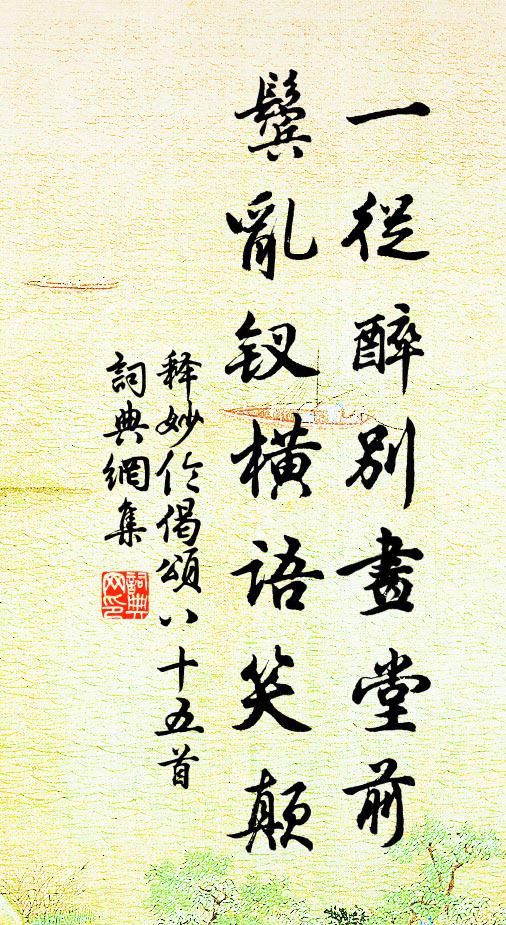 一從醉別畫堂前
鬓亂釵橫語笑顛
释妙伦偈頌八十五首
詞典網集
詞典网印